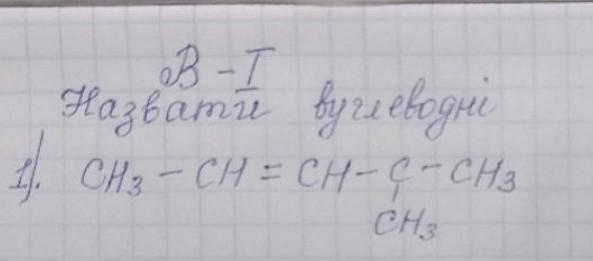 В - I
Назвати вуглеводні
1). CH₃ - CH = CH - C - CH₃
CH₃